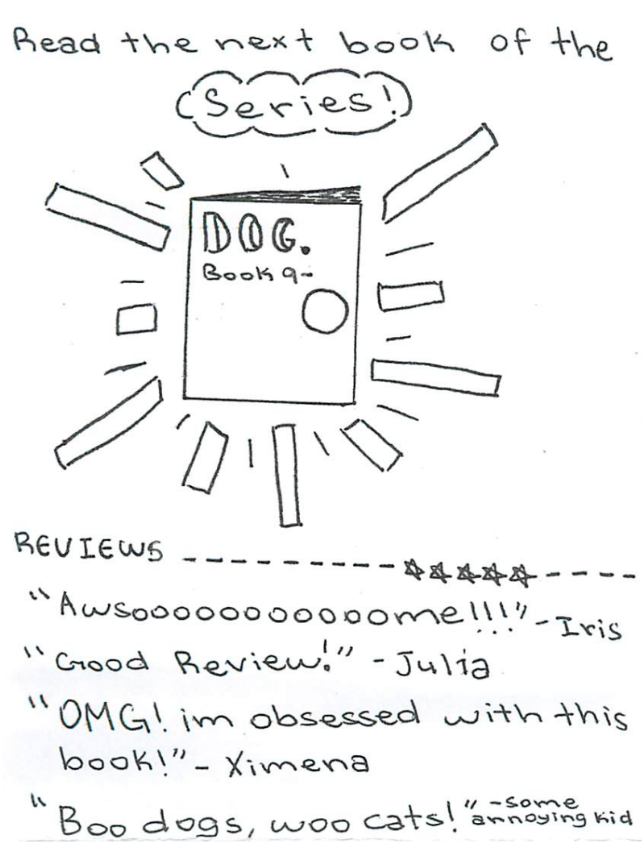 Read the next book of the
Series!
DOG.
Book 9-
REVIEWS ---------☆☆☆☆☆----
"Awsooooooooooome!!!" - Iris
"Good Review!" - Julia
"OMG! im obsessed with this
book!" - Ximena
"Boo dogs, woo cats!" - some
annoying kid